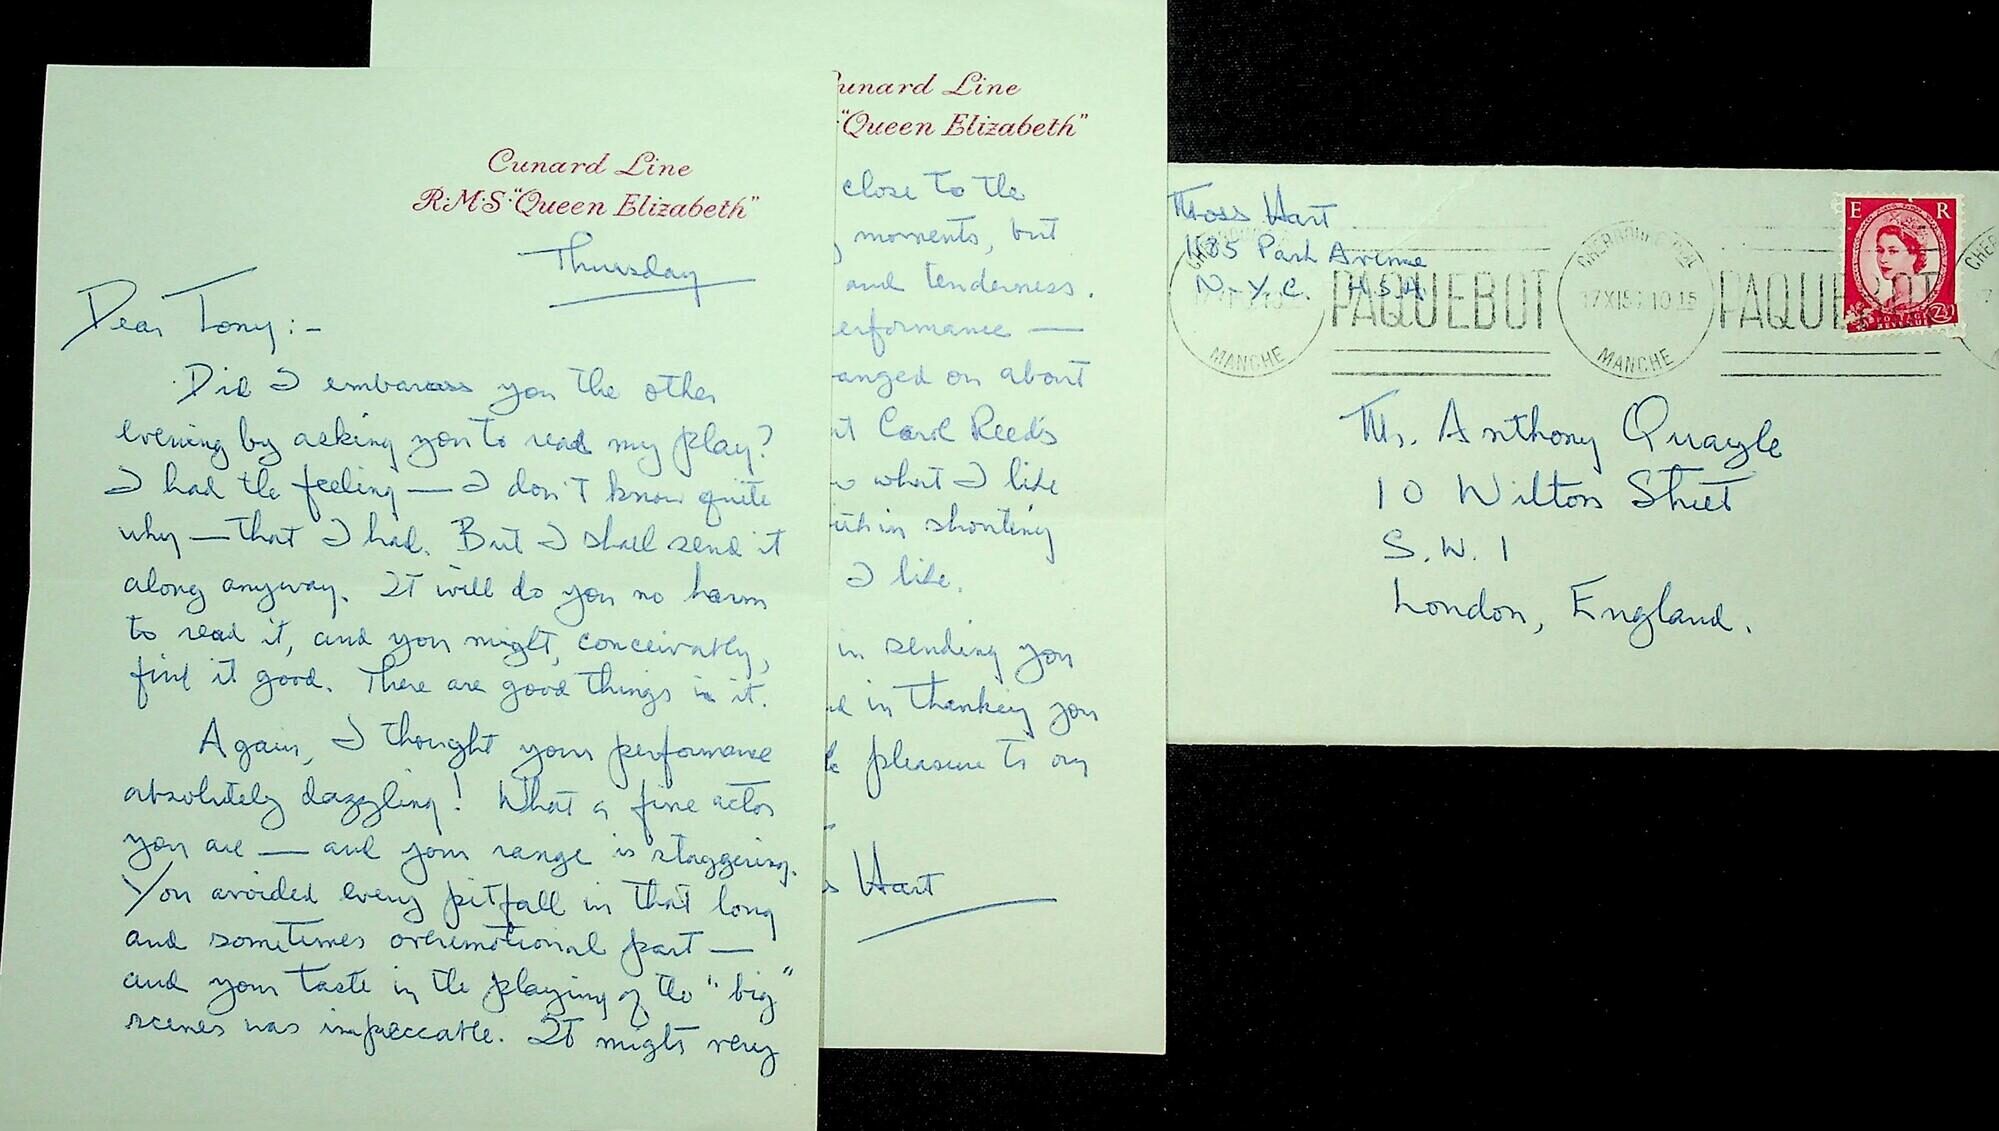 Cunard Line
R·M·S·"Queen Elizabeth"
Thursday
Dear Tony:-
Did I embarass you the other
evening by asking you to read my play?
I had the feeling — I don't know quite
why — that I had. But I shall send it
along anyway. It will do you no harm
to read it, and you might, conceivably,
find it good. There are good things in it.
Again, I thought your performance
absolutely dazzling! What a fine actor
you are — and your range is staggering.
You avoided every pitfall in that long
and sometimes overemotional part —
and your taste in the playing of the "big"
scenes was impeccable. It might very
unard Line
"Queen Elizabeth"
close to the
moments, but
and tenderness.
erformance —
anged on about
Carol Reed's
what I like
shouting
I like.
in sending you
in thanking you
pleasure to
s Hart
Moss Hart
1185 Park Avenue
N.Y.C. USA
PAQUEBOT
MANCHE
PAQUEBOT
MANCHE
E R
POSTAGE
REVENUE
2½
Mr. Anthony Quayle
10 Wilton Street
S.W. 1
London, England.